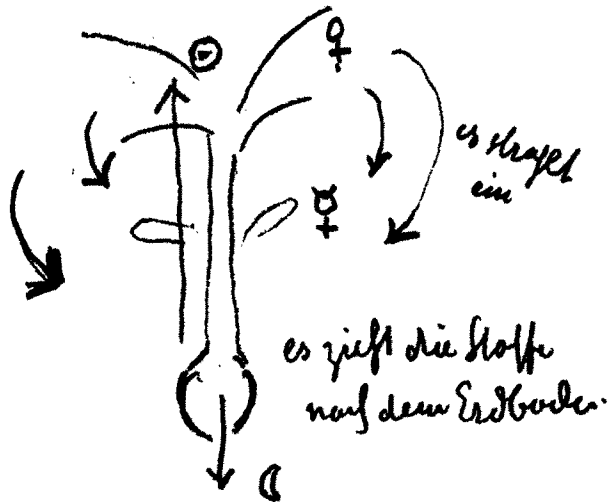 es strahlt
ein
es zieht die Stoffe
nach dem Erdboden.